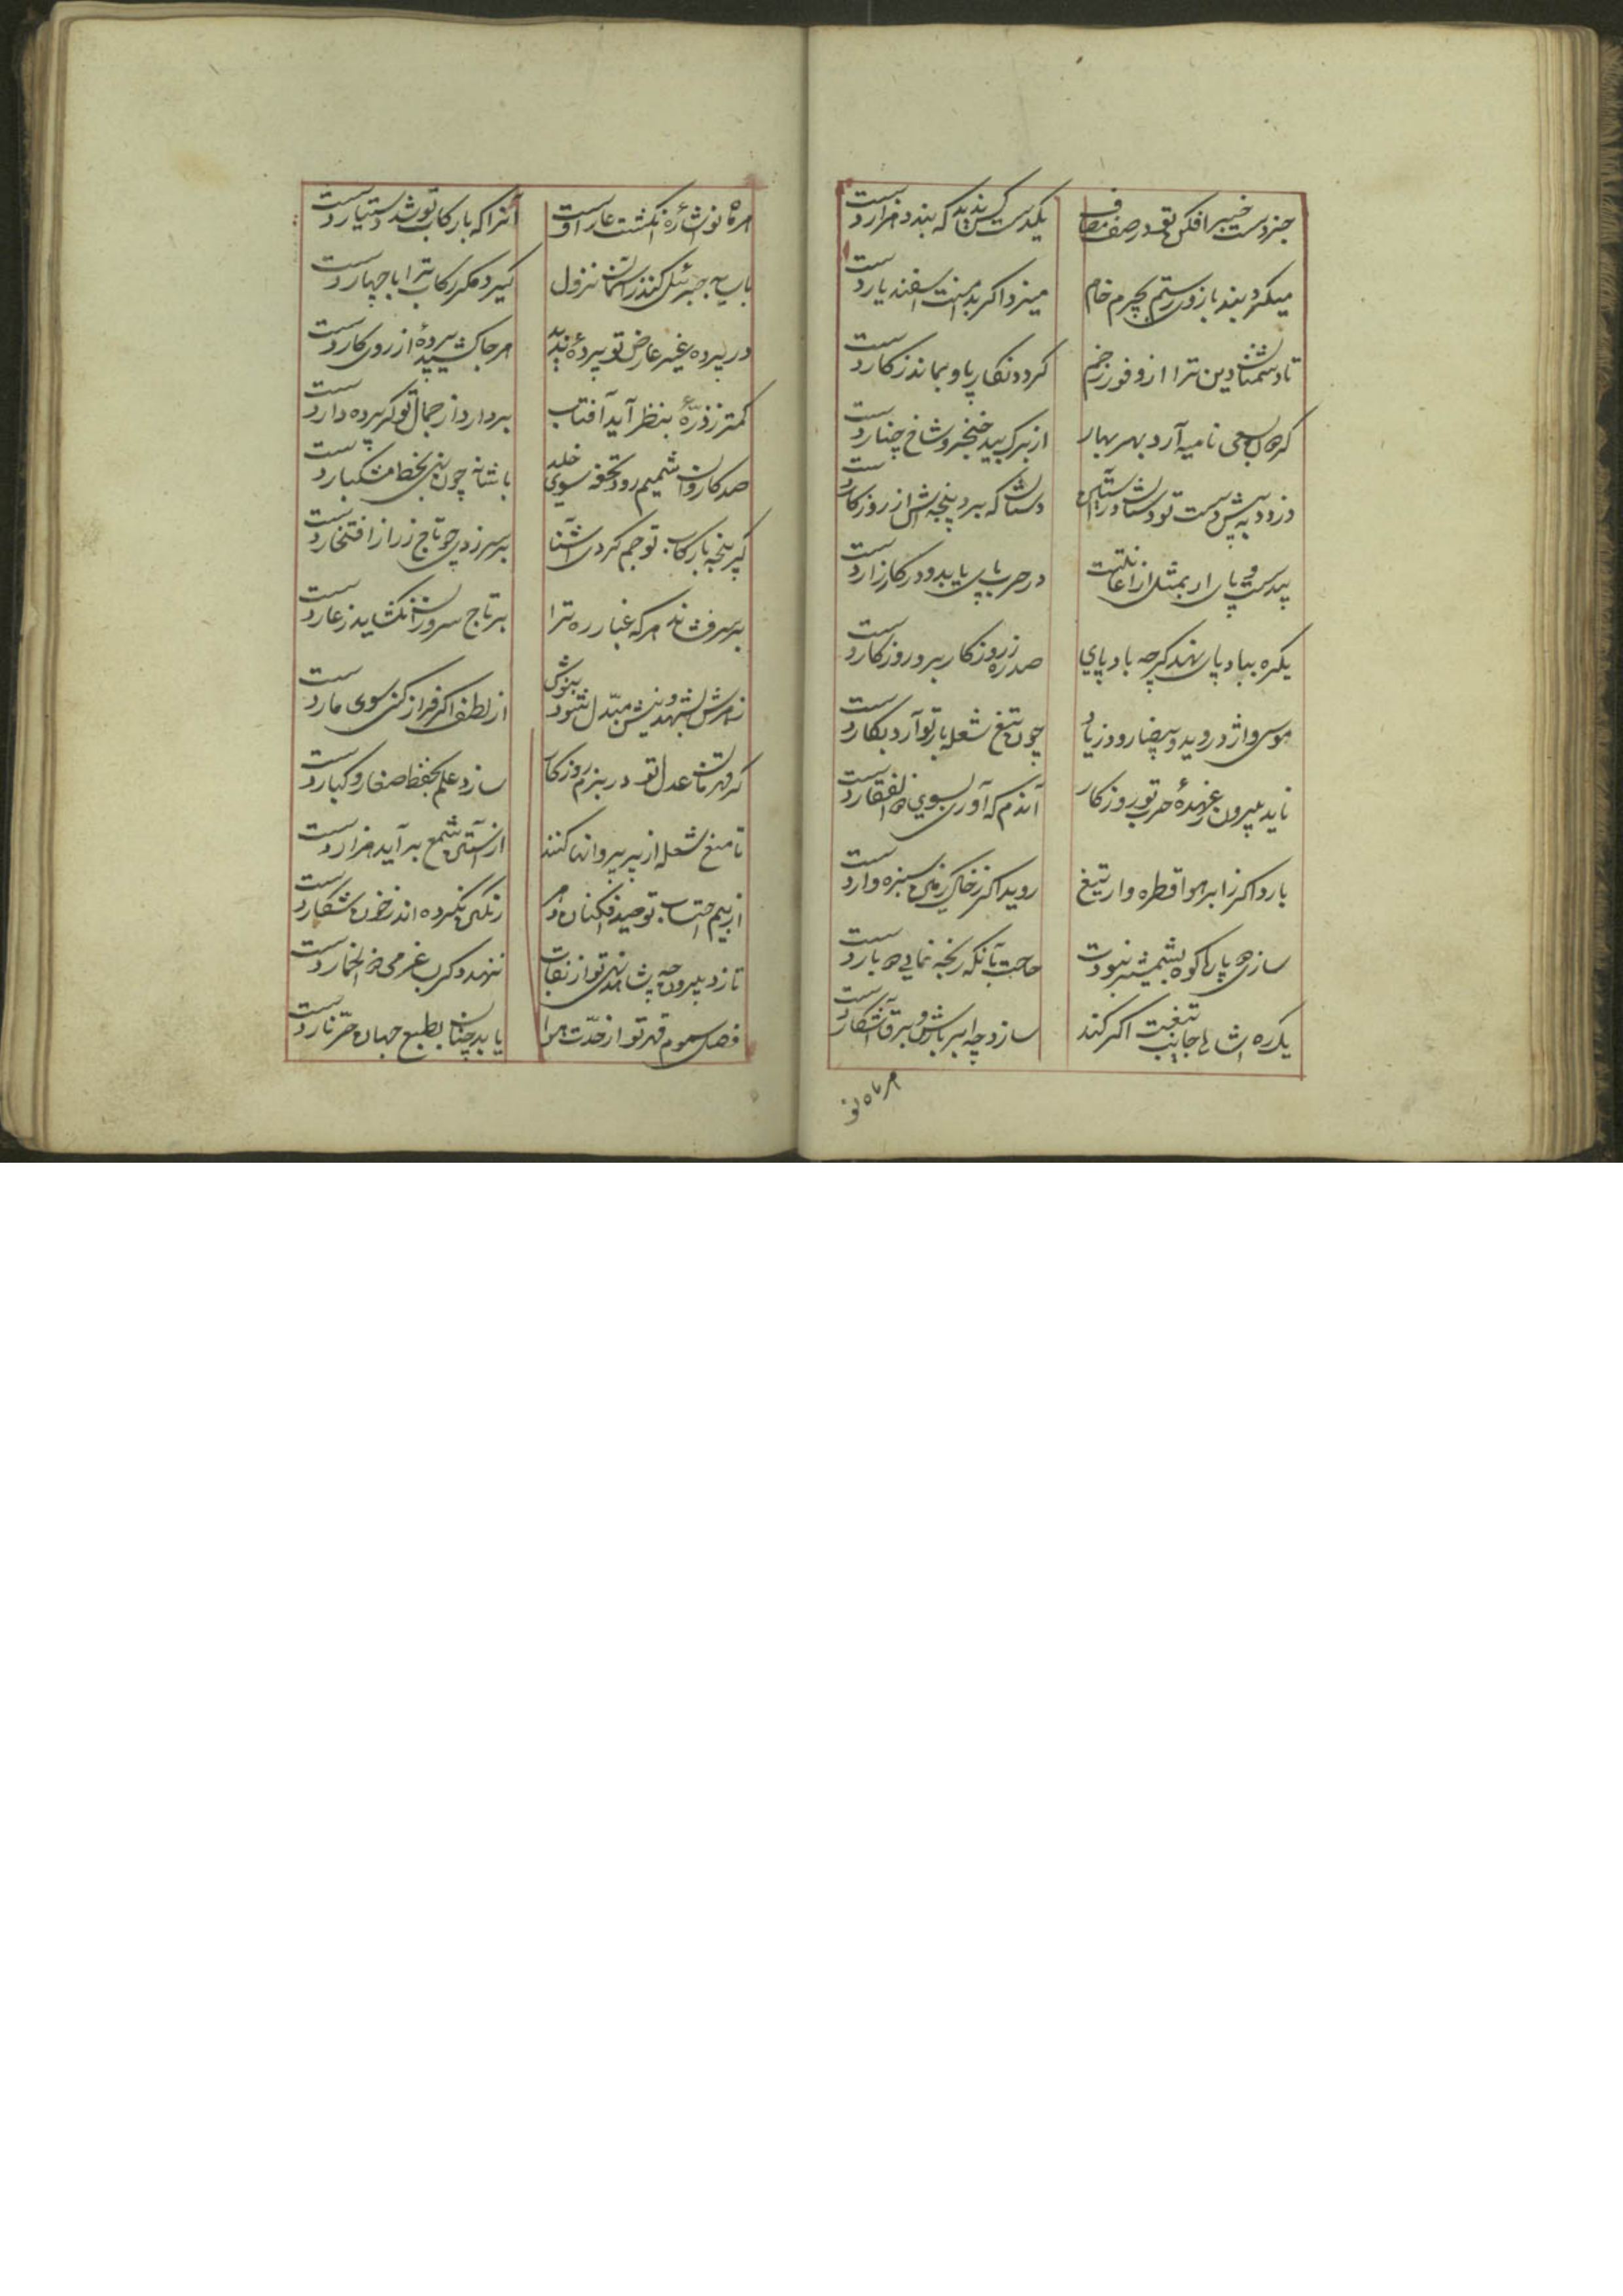 جز دست خیبر افکن تو در صف مصاف
یکدست کس ندید که بندد هزار دست
میکرد بند بازوی رستم بچرم خام
میزد اگر بدامنت اسفندیار دست
تا دشمنان دین ترا از وفور زخم
گردد نگار پا و بماند ز کار دست
گر هر بسعی نامیه آرد بهر بهار
از برگ بید خنجر و شاخ چنار دست
دزدد به پیش دست تو دستان در آستین
دستان که برد پنجه‌اش از روزگار دست
در حرب پای باید و در کارزار دست
یکره بباد پای نهد گرچه باد پای
صد ره ز روزگار برد روزگار دست
موسی و اژدر و ید بیضا رود ز یاد
چون تیغ شعله بار تو آرد بکار دست
ناید برون ز عهدهٔ حرب تو روزگار
آندم که آوری بسوی ذوالفقار دست
بارد اگر ز ابر هوا قطره وار تیغ
روید اگر ز خاک زمین سبزه وار دست
سازی دو پاره کوه بشمشیر نبودت
حاجت بآنکه رنجه نمایی دو بار دست
یکره اشاره جانب تیغت اگر کند
سازد چه ابر بارش و برق آشکار دست
هر ماه نو
هر ماه نو اشارهٔ انگشت عار اوست
آنرا که با رکاب تو شد دستیار دست
با پایه جبرئیل کند ز آسمان نزول
گیرد مگر رکاب ترا با چهار دست
در پرده غیر عارض تو پردهٔ ندید
هر جا کشید پردهٔ از روی کار دست
کمتر ز ذرّهٔ بنظر آید آفتاب
بردارد از جمال تو گر پرده دار دست
صد کاروان شمیم رود تحفه سوی خلد
با شانه چون بری بخط مشکبار دست
گر پنجه با رکاب تو جم کردی آشنا
بر سر زدی چو تاج زر از افتخار دست
بر سر فشاند هر که غبار ره ترا
بر تاج سروران نگشاید ز عار دست
زهرش بشهد و نیش مبدّل شود بنوش
از لطف اگر فراز کنی سوی مار دست
گر قهرمان عدل تو در بزم روزگار
سازد علم بحفظ صغار و کبار دست
تا منع شعله از پر پروانها کنند
از آستین شمع برآید هزار دست
از بیم احتساب تو صید افکنان دهر
رنگین نکرده‌اند ز خون شکار دست
تا زد برون چه شاهد نهی تو از نقاب
ننهد دگر بساغر می ذو الخمار دست
فصل سموم قهر تو از حدّت هوا
یابد چنان بطبع جهان حرّ نار دست